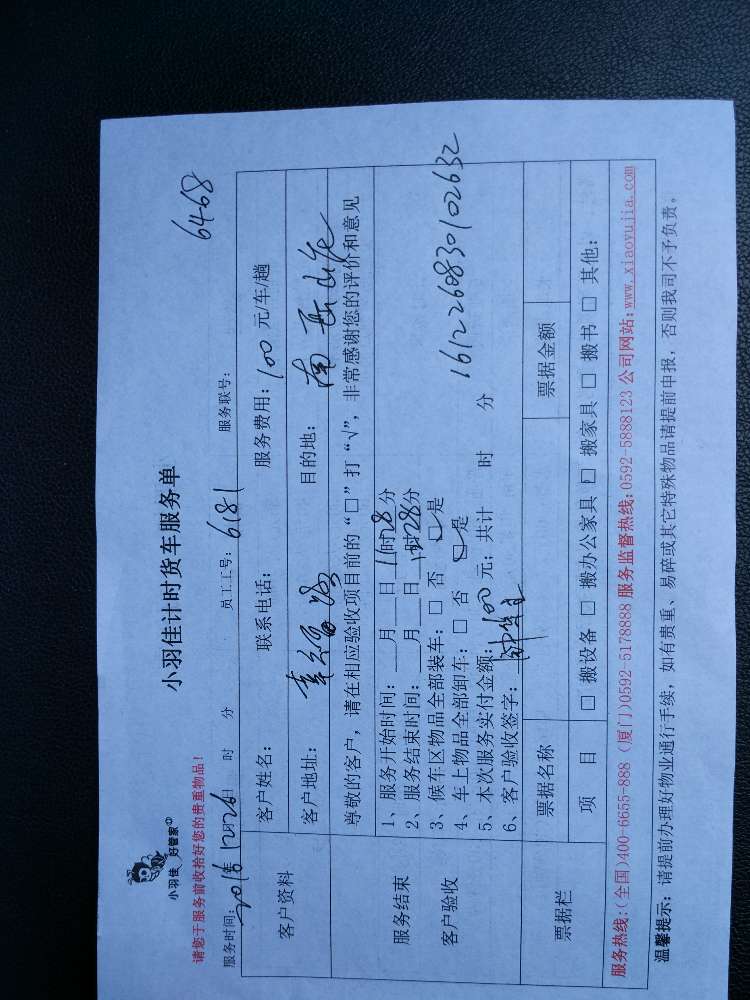 小羽佳 好管家
小羽佳计时货车服务单
请您于服务前收拾好您的贵重物品!
6468
服务时间: 2016年12月26日 时 分 员工工号: 6181 服务联号:
客户资料
客户姓名: 联系电话: 服务费用: 100 元/车/趟
客户地址: 目的地:
尊敬的客户,请在相应验收项目前的“□”打“√”,非常感谢您的评价和意见
服务结束
客户验收
1、服务开始时间: 月 日 11时28分
2、服务结束时间: 月 日 时28分
3、候车区物品全部装车: □ 否 □ 是
4、车上物品全部卸车: □ 否 □ 是
5、本次服务实付金额: 100 元; 共计 时 分
6、客户验收签字:
1612260830102632
票据栏
票据名称 票据金额
项 目 □ 搬设备 □ 搬办公家具 □ 搬家具 □ 搬书 □ 其他:
服务热线:(全国)400-6655-888 (厦门)0592-5178888 服务监督热线:0592-5888123 公司网站:www.xiaoyujia.com
温馨提示: 请提前办理好物业通行手续,如有贵重、易碎或其它特殊物品请提前申报,否则我司不予负责。